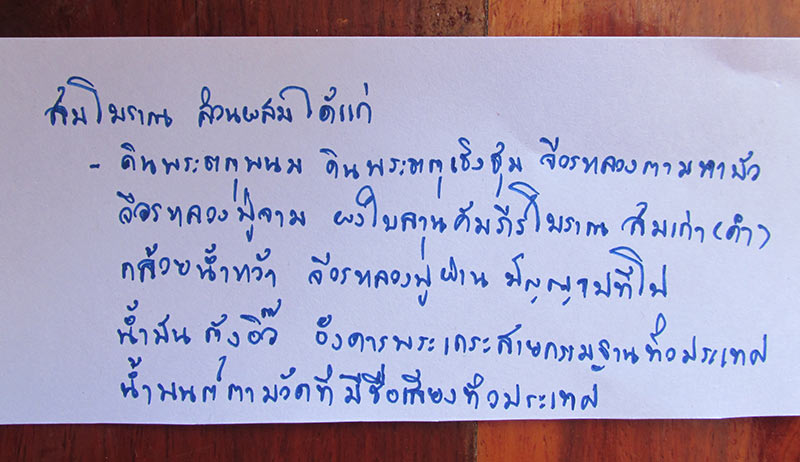 ส้มโบราณ ส่วนผสมได้แก่
- ดินพระธาตุพนม ดินพระธาตุเชิงชุม จีวรหลวงตามหาบัว
จีวรหลวงปู่จาม ผงใบลานคัมภีร์โบราณ ส้มเก่า (ดำ)
กล้วยน้ำหว้า จีวรหลวงปู่ผ่าน ปัญญาปทีโป
น้ำมันตังอิ๊ว อังคารพระเถระสายกรรมฐานทั่วประเทศ
น้ำมนต์ตามวัดที่มีชื่อเสียงทั่วประเทศ